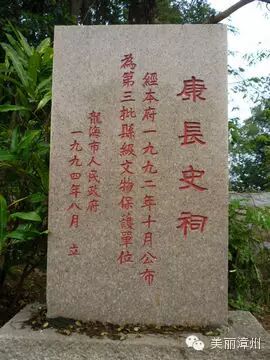 康長史祠
經本府一九九二年十月公布
為第三批縣級文物保護單位
龍海市人民政府
一九九四年八月 立
美丽漳州